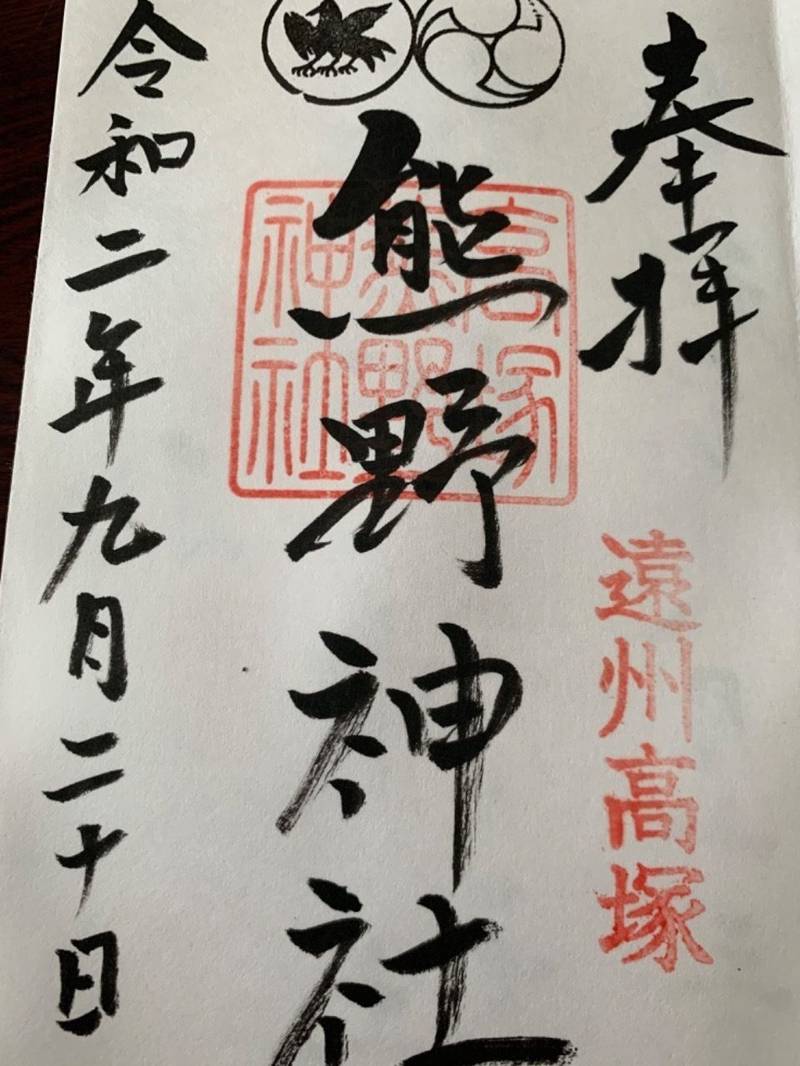 奉拝
遠州高塚
高塚
熊野
神社
熊野神社
令和二年九月二十日